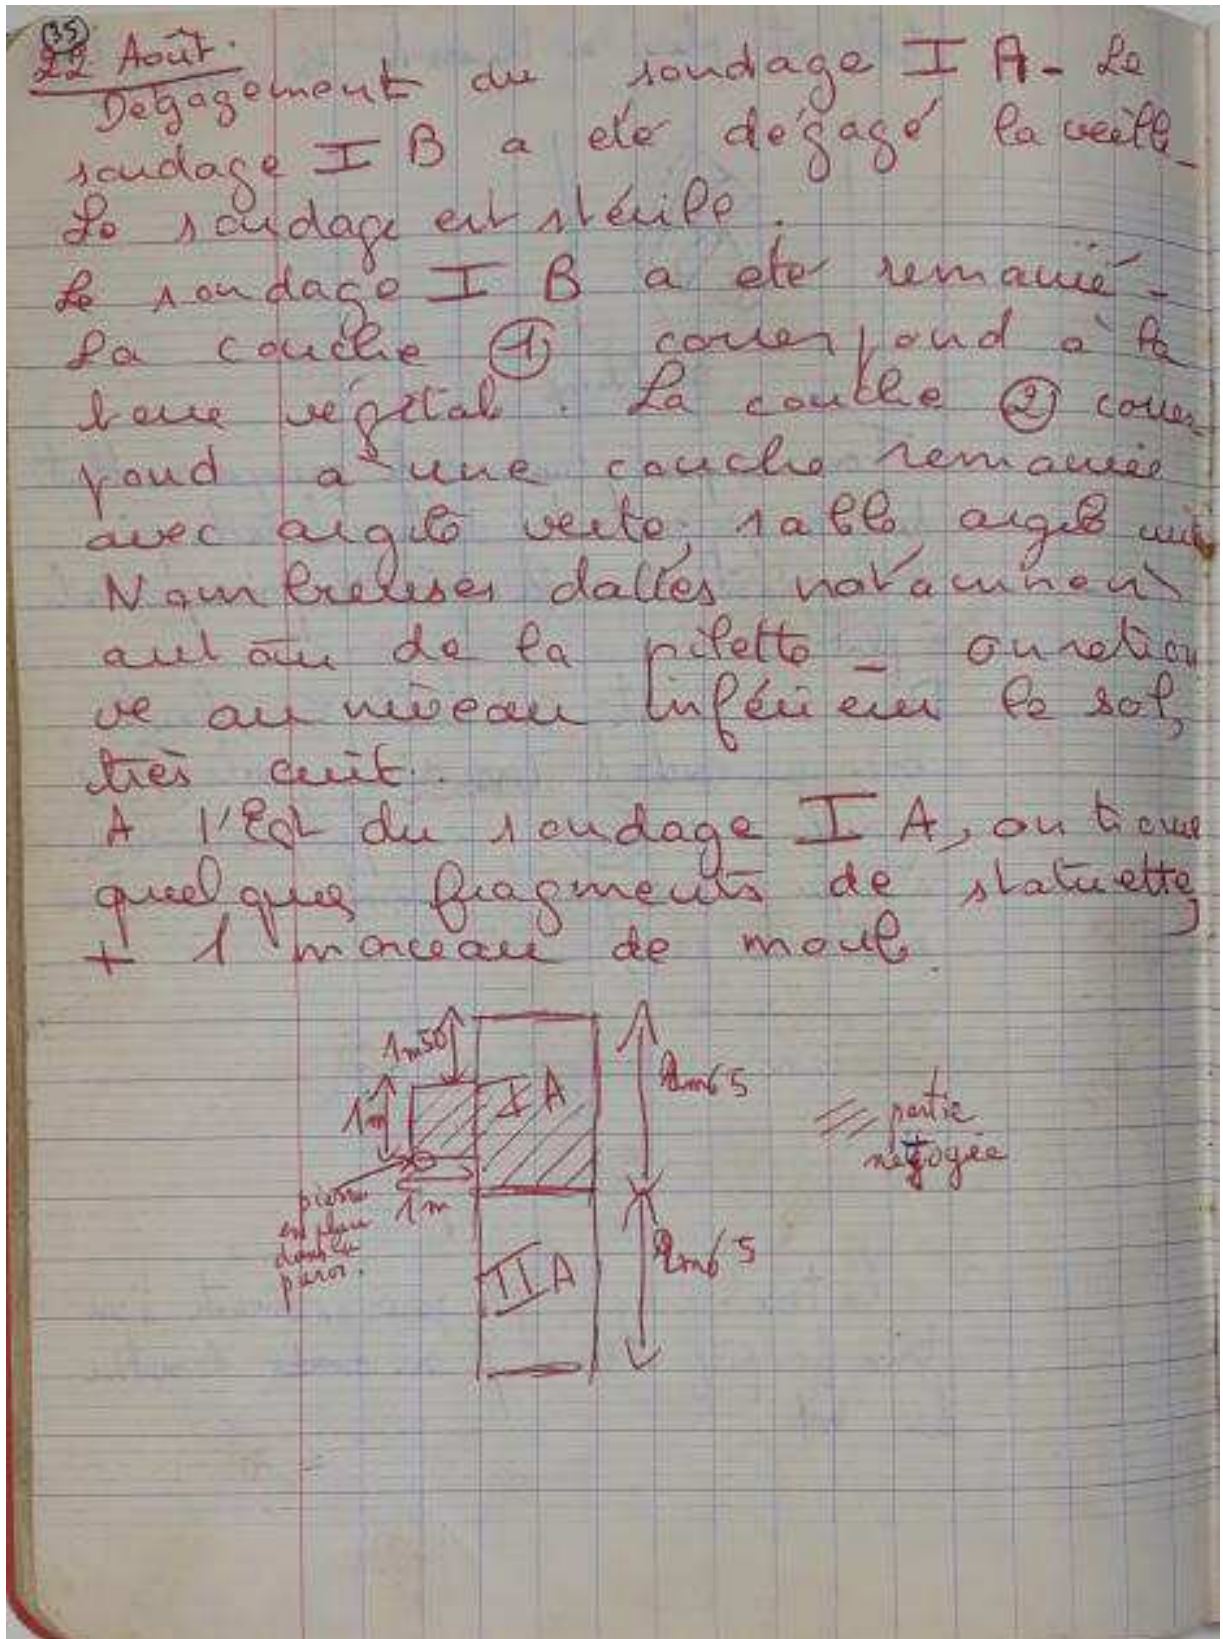 35
22 Août.
Dégagement du sondage I A - Le
sondage I B a été dégagé la veille -
Le sondage est stérile.
Le sondage I B a été remanié -
La couche ① correspond à la
terre végétal. La couche ② corres
pond à une couche remaniée
avec argile verte, sable, argile cuite
Nombreuses dalles notamment
autour de la pilette - on retrou
ve au niveau inférieur le sol,
très cuit.
A l'Est du sondage I A, on trouve
quelques fragments de statuette,
+ 1 morceau de moule.
1m50
I A
2m65
1m
partie
1m
pierre
en place
dans la
paroi.
II A
2m65